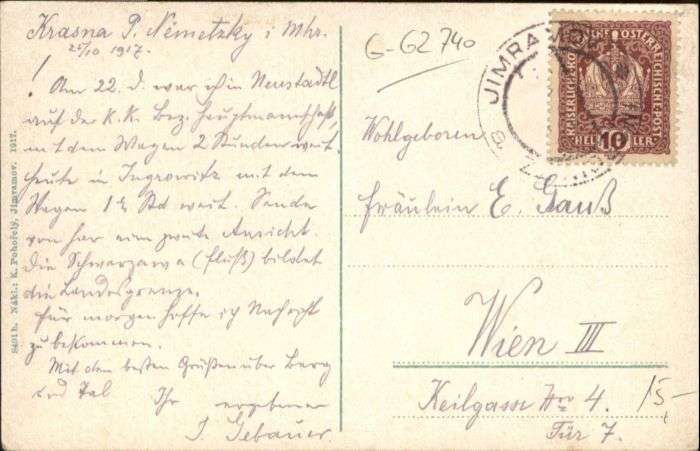 Krasna P. Německy i Mhr.
25/10 1917.
G-G2 740
! Am 22. d. war ich in Neustadtl
auf der K.K. Bez. Hauptmannschaft,
mit dem Wagen 2 Stunden weit.
heute in Ingrowitz mit dem
Wagen 1½ Std weit. Sende
von hier eine zweite Ansicht.
Die Schwarzawa (Fluß) bildet
die Landesgrenze.
Für morgen hoffe ich Nachricht
zu bekommen.
Mit den besten Grüßen über Berg
und Tal
Ihr ergebener
J. Gebauer
8401 b. Nákl.: K. Pokorný, Jimramov. 1912.
JIMRAMOV
KAISERLICHE KÖNIGLICHE ÖSTERREICHISCHE POST
HELLER
10
Wohlgeboren
Fräulein E. Gauß
Wien III
Keilgasse Nro 4.
Tür 7.
15-